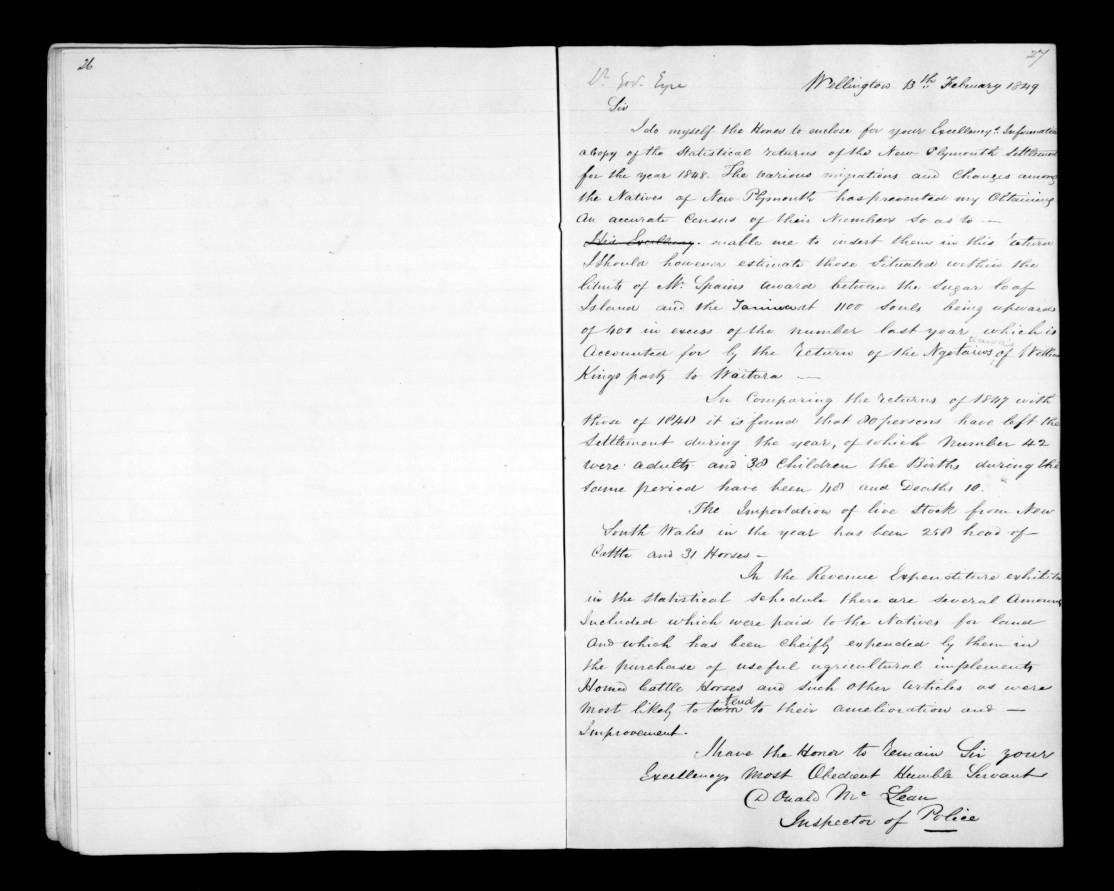 26
27
Lt. Gov. Eyre
Wellington 13th February 1849
Sir
I do myself the Honor to enclose for your Excellency's Information
a Copy of the Statistical returns of the New Plymouth Settlement
for the year 1848. The various migrations and Changes among
the Natives of New Plymouth has prevented my Obtaining
An accurate Census of their Numbers so as to —
His Excellency. enable me to insert them in this return
I Should however estimate those Situated within the
limits of Mr Spains award between the Sugar loaf
Island and the Taniwa at 1100 Souls being upwards
of 400 in excess of the number last year which is
Accounted for by the return of the Ngatiawas of William
Kings party to Waitara —
In Comparing the returns of 1847 with
those of 1848 it is found that 80 persons have left the
Settlement during the year, of which Number 42
were adults and 38 Children the Births during the
same period have been 48 and Deaths 10.
The Importation of live Stock from New
South Wales in the year has been 258 head of
Cattle and 31 Horses —
In the Revenue Expenditure exhibited
in the statistical schedule there are several Amounts
Included which were paid to the Natives for land
And which has been cheifly expended by them in
the purchase of useful agricultural implements
Horned Cattle Horses and such other articles as were
Most likely to tend to their amelioration and —
Improvement.
I have the Honor to remain Sir your
Excellencys Most Obedient Humble Servant
Donald McLean
Inspector of Police